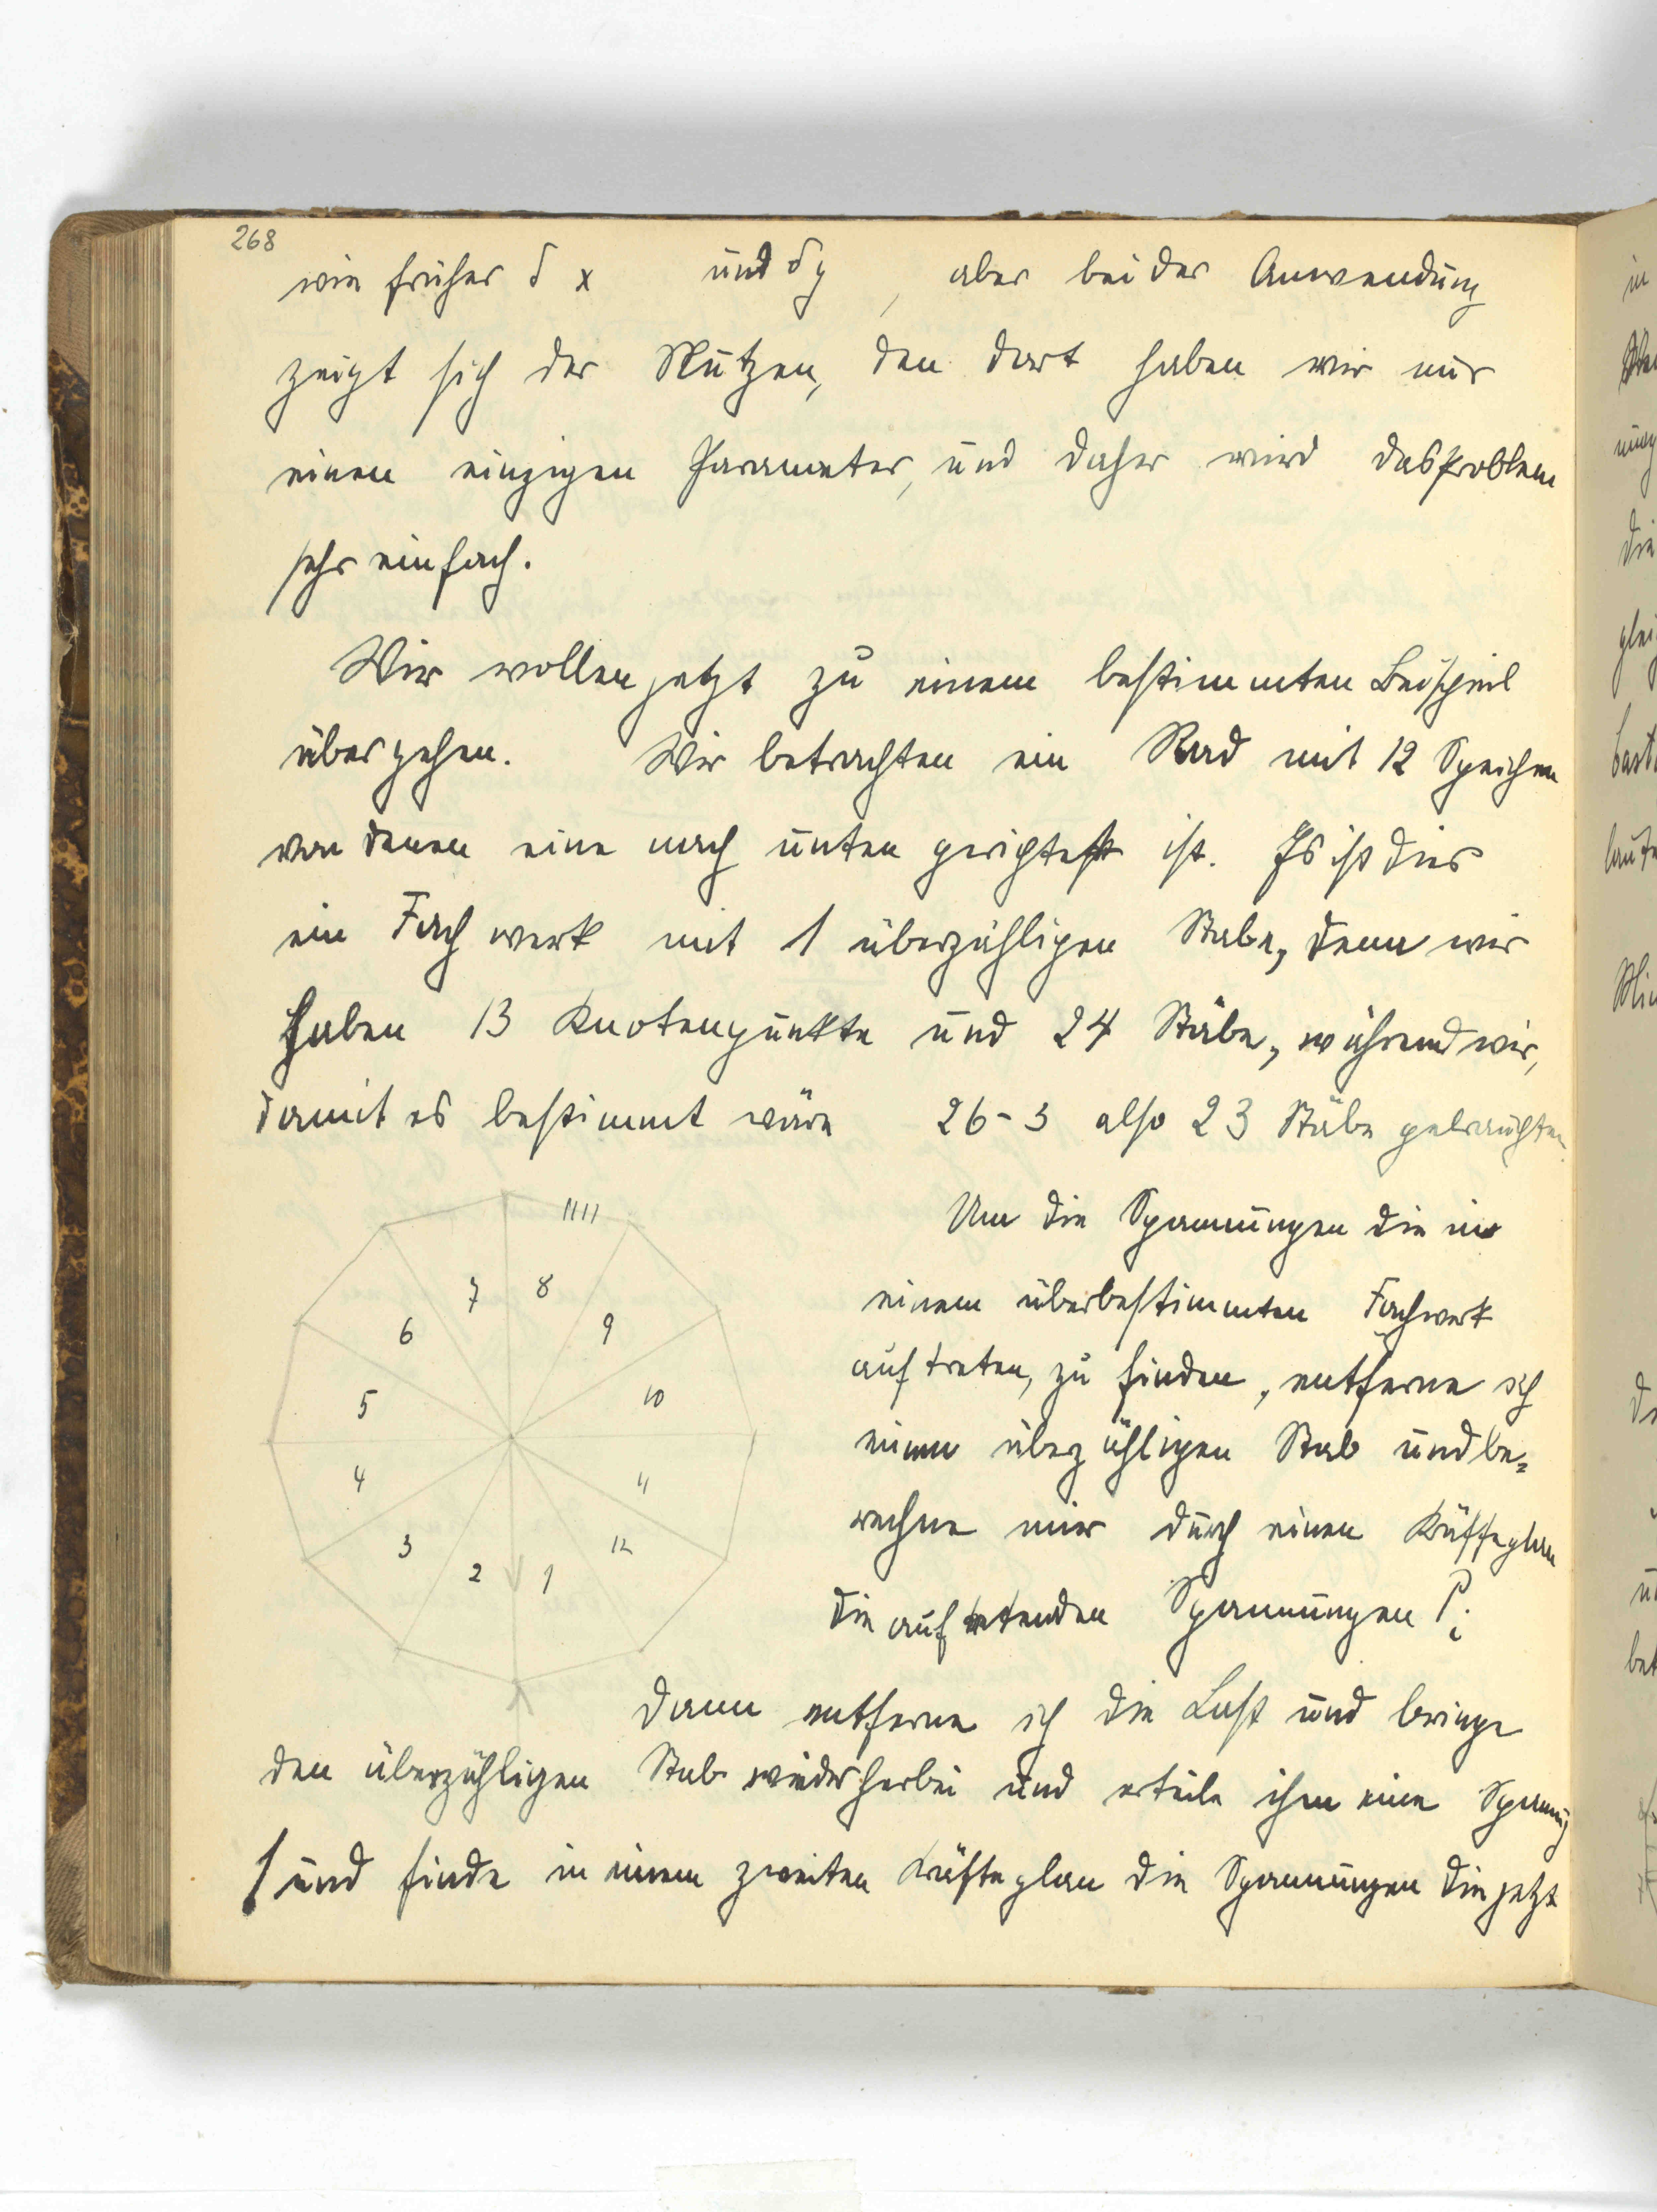 268
wie früher δ x und δy, aber bei der Anwendung
zeigt sich der Nutzen, den dort haben wir nur
einen einzigen Parameter, und daher wird das Problem
sehr einfach.
Wir wollen jetzt zu einem bestimmten Beispiel
übergehen. Wir betrachten ein Rad mit 12 Speichen
von denen eine nach unten gerichtet ist. Es ist dies
ein Fachwerk mit 1 überzähligen Stabe, denn wir
haben 13 Knotenpunkte und 24 Stäbe, während wir,
damit es bestimmt wäre 26-3 also 23 Stäbe gebrauchten.
Um die Spannungen die in
einem überbestimmten Fachwerk
auftreten, zu finden, entferne ich
einen überzähligen Stab und be=
rechne mir durch einen Kräfteplan
die auftretenden Spannungen
dann entferne ich die Last und bringe
den überzähligen Stab wieder herbei und erteile ihm eine Spannung
1 und finde in einem zweiten Kräfteplan die Spannungen die jetzt
7 8
6 9
5 10
4 11
3 12
2 1